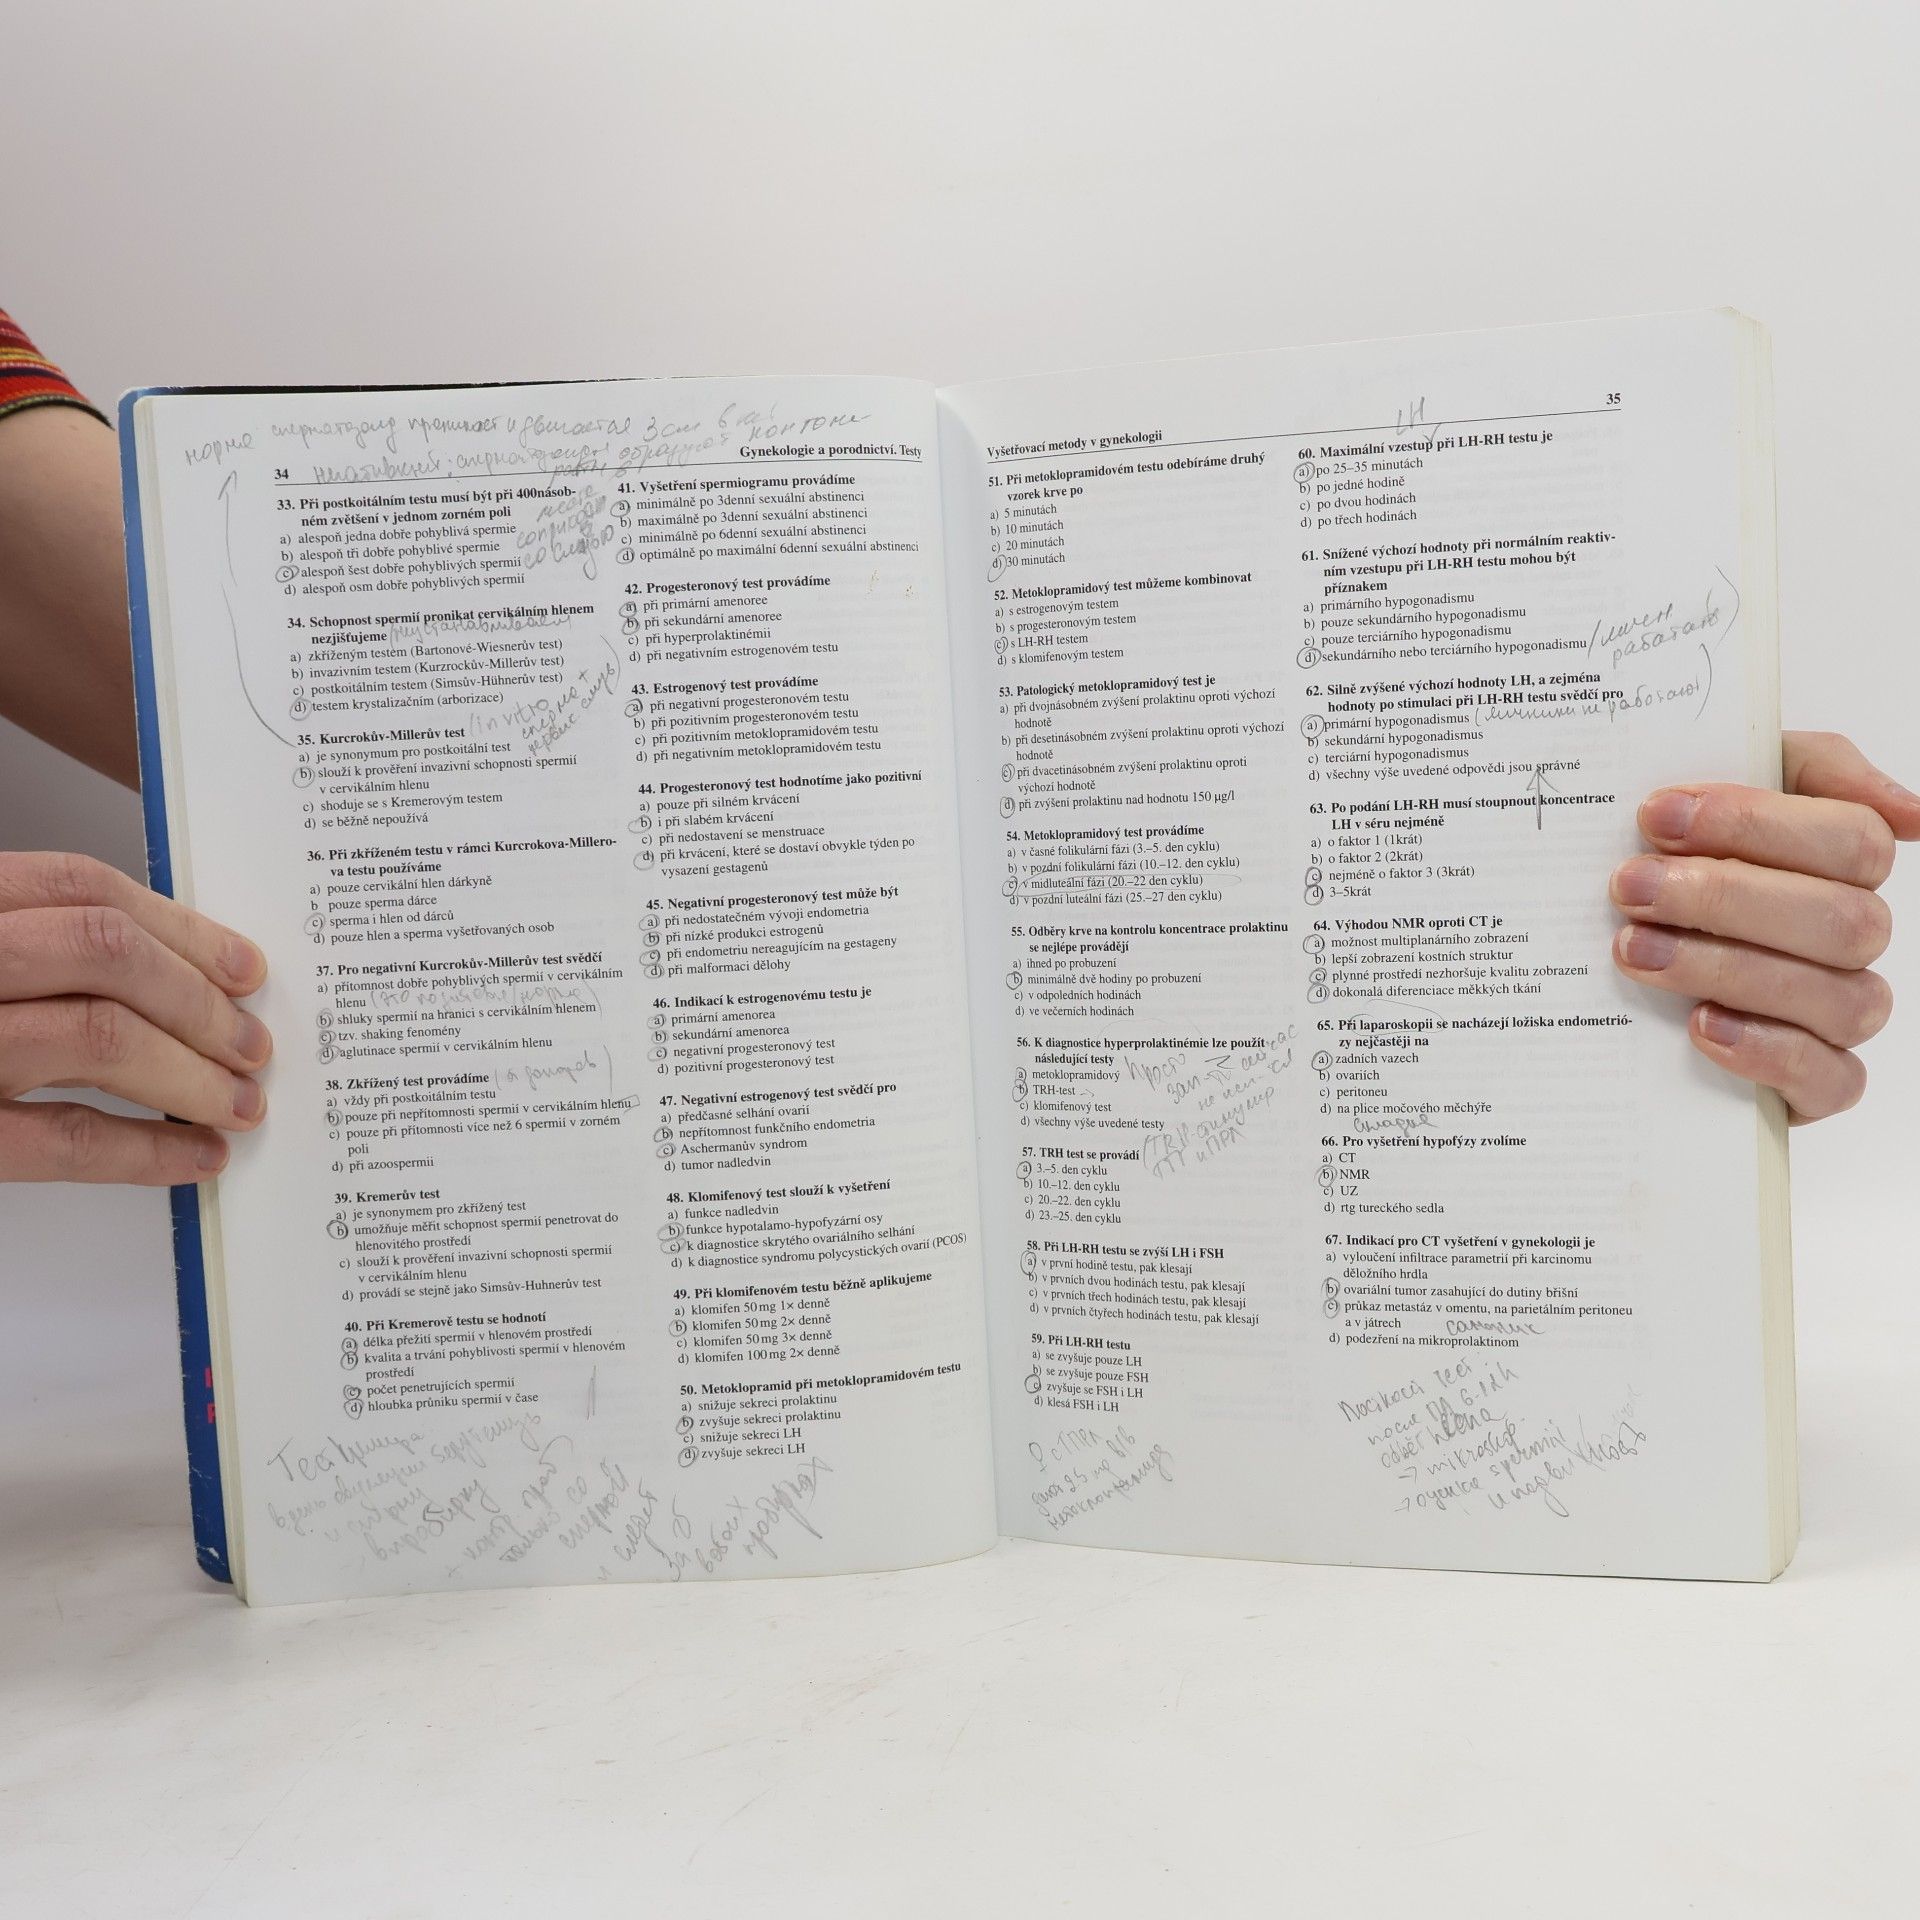 34
Gynekologie a porodnictví. Testy
33. Při postkoitálním testu musí být při 400násob-
ném zvětšení v jednom zorném poli
a) alespoň jedna dobře pohyblivá spermie
b) alespoň tři dobře pohyblivé spermie
c) alespoň šest dobře pohyblivých spermií
d) alespoň osm dobře pohyblivých spermií
34. Schopnost spermií pronikat cervikálním hlenem
nezjišťujeme
a) zkříženým testem (Bartonové-Wiesnerův test)
b) invazivním testem (Kurzrockův-Millerův test)
c) postkoitálním testem (Simsův-Hühnerův test)
d) testem krystalizačním (arborizace)
35. Kurcrokův-Millerův test /in vitro
a) je synonymum pro postkoitální test
b) slouží k prověření invazivní schopnosti spermií
v cervikálním hlenu
c) shoduje se s Kremerovým testem
d) se běžně nepoužívá
36. Při zkříženém testu v rámci Kurcrokova-Millero-
va testu používáme
a) pouze cervikální hlen dárkyně
b pouze sperma dárce
c) sperma i hlen od dárců
d) pouze hlen a sperma vyšetřovaných osob
37. Pro negativní Kurcrokův-Millerův test svědčí
a) přítomnost dobře pohyblivých spermií v cervikálním
hlenu
b) shluky spermií na hranici s cervikálním hlenem
c) tzv. shaking fenomény
d) aglutinace spermií v cervikálním hlenu
38. Zkřížený test provádíme
a) vždy při postkoitálním testu
b) pouze při nepřítomnosti spermií v cervikálním hlenu
c) pouze při přítomnosti více než 6 spermií v zorném
poli
d) při azoospermii
39. Kremerův test
a) je synonymem pro zkřížený test
b) umožňuje měřit schopnost spermií penetrovat do
hlenovitého prostředí
c) slouží k prověření invazivní schopnosti spermií
v cervikálním hlenu
d) provádí se stejně jako Simsův-Huhnerův test
40. Při Kremerově testu se hodnotí
a) délka přežití spermií v hlenovém prostředí
b) kvalita a trvání pohyblivosti spermií v hlenovém
prostředí
c) počet penetrujících spermií
d) hloubka průniku spermií v čase
41. Vyšetření spermiogramu provádíme
a) minimálně po 3denní sexuální abstinenci
b) maximálně po 3denní sexuální abstinenci
c) minimálně po 6denní sexuální abstinenci
d) optimálně po maximální 6denní sexuální abstinenci
42. Progesteronový test provádíme
a) při primární amenoree
b) při sekundární amenoree
c) při hyperprolaktinémii
d) při negativním estrogenovém testu
43. Estrogenový test provádíme
a) při negativním progesteronovém testu
b) při pozitivním progesteronovém testu
c) při pozitivním metoklopramidovém testu
d) při negativním metoklopramidovém testu
44. Progesteronový test hodnotíme jako pozitivní
a) pouze při silném krvácení
b) i při slabém krvácení
c) při nedostavení se menstruace
d) při krvácení, které se dostaví obvykle týden po
vysazení gestagenů
45. Negativní progesteronový test může být
a) při nedostatečném vývoji endometria
b) při nízké produkci estrogenů
c) při endometriu nereagujícím na gestageny
d) při malformaci dělohy
46. Indikací k estrogenovému testu je
a) primární amenorea
b) sekundární amenorea
c) negativní progesteronový test
d) pozitivní progesteronový test
47. Negativní estrogenový test svědčí pro
a) předčasné selhání ovarií
b) nepřítomnost funkčního endometria
c) Aschermanův syndrom
d) tumor nadledvin
48. Klomifenový test slouží k vyšetření
a) funkce nadledvin
b) funkce hypotalamo-hypofyzární osy
c) k diagnostice skrytého ovariálního selhání
d) k diagnostice syndromu polycystických ovarií (PCOS)
49. Při klomifenovém testu běžně aplikujeme
a) klomifen 50 mg 1× denně
b) klomifen 50 mg 2× denně
c) klomifen 50 mg 3× denně
d) klomifen 100 mg 2× denně
50. Metoklopramid při metoklopramidovém testu
a) snižuje sekreci prolaktinu
b) zvyšuje sekreci prolaktinu
c) snižuje sekreci LH
d) zvyšuje sekreci LH
Vyšetřovací metody v gynekologii
35
51. Při metoklopramidovém testu odebíráme druhý
vzorek krve po
a) 5 minutách
b) 10 minutách
c) 20 minutách
d) 30 minutách
52. Metoklopramidový test můžeme kombinovat
a) s estrogenovým testem
b) s progesteronovým testem
c) s LH-RH testem
d) s klomifenovým testem
53. Patologický metoklopramidový test je
a) při dvojnásobném zvýšení prolaktinu oproti výchozí
hodnotě
b) při desetinásobném zvýšení prolaktinu oproti výchozí
hodnotě
c) při dvacetinásobném zvýšení prolaktinu oproti
výchozí hodnotě
d) při zvýšení prolaktinu nad hodnotu 150 µg/l
54. Metoklopramidový test provádíme
a) v časné folikulární fázi (3.–5. den cyklu)
b) v pozdní folikulární fázi (10.–12. den cyklu)
c) v midluteální fázi (20.–22 den cyklu)
d) v pozdní luteální fázi (25.–27 den cyklu)
55. Odběry krve na kontrolu koncentrace prolaktinu
se nejlépe provádějí
a) ihned po probuzení
b) minimálně dvě hodiny po probuzení
c) v odpoledních hodinách
d) ve večerních hodinách
56. K diagnostice hyperprolaktinémie lze použít
následující testy
a) metoklopramidový
b) TRH-test
c) klomifenový test
d) všechny výše uvedené testy
57. TRH test se provádí
a) 3.–5. den cyklu
b) 10.–12. den cyklu
c) 20.–22. den cyklu
d) 23.–25. den cyklu
58. Při LH-RH testu se zvýší LH i FSH
a) v první hodině testu, pak klesají
b) v prvních dvou hodinách testu, pak klesají
c) v prvních třech hodinách testu, pak klesají
d) v prvních čtyřech hodinách testu, pak klesají
59. Při LH-RH testu
a) se zvyšuje pouze LH
b) se zvyšuje pouze FSH
c) zvyšuje se FSH i LH
d) klesá FSH i LH
LH
60. Maximální vzestup při LH-RH testu je
a) po 25–35 minutách
b) po jedné hodině
c) po dvou hodinách
d) po třech hodinách
61. Snížené výchozí hodnoty při normálním reaktiv-
ním vzestupu při LH-RH testu mohou být
příznakem
a) primárního hypogonadismu
b) pouze sekundárního hypogonadismu
c) pouze terciárního hypogonadismu
d) sekundárního nebo terciárního hypogonadismu
62. Silně zvýšené výchozí hodnoty LH, a zejména
hodnoty po stimulaci při LH-RH testu svědčí pro
a) primární hypogonadismus
b) sekundární hypogonadismus
c) terciární hypogonadismus
d) všechny výše uvedené odpovědi jsou správné
63. Po podání LH-RH musí stoupnout koncentrace
LH v séru nejméně
a) o faktor 1 (1krát)
b) o faktor 2 (2krát)
c) nejméně o faktor 3 (3krát)
d) 3–5krát
64. Výhodou NMR oproti CT je
a) možnost multiplanárního zobrazení
b) lepší zobrazení kostních struktur
c) plynné prostředí nezhoršuje kvalitu zobrazení
d) dokonalá diferenciace měkkých tkání
65. Při laparoskopii se nacházejí ložiska endometrió-
zy nejčastěji na
a) zadních vazech
b) ovariích
c) peritoneu
d) na plice močového měchýře
66. Pro vyšetření hypofýzy zvolíme
a) CT
b) NMR
c) UZ
d) rtg tureckého sedla
67. Indikací pro CT vyšetření v gynekologii je
a) vyloučení infiltrace parametrií při karcinomu
děložního hrdla
b) ovariální tumor zasahující do dutiny břišní
c) průkaz metastáz v omentu, na parietálním peritoneu
a v játrech
d) podezření na mikroprolaktinom